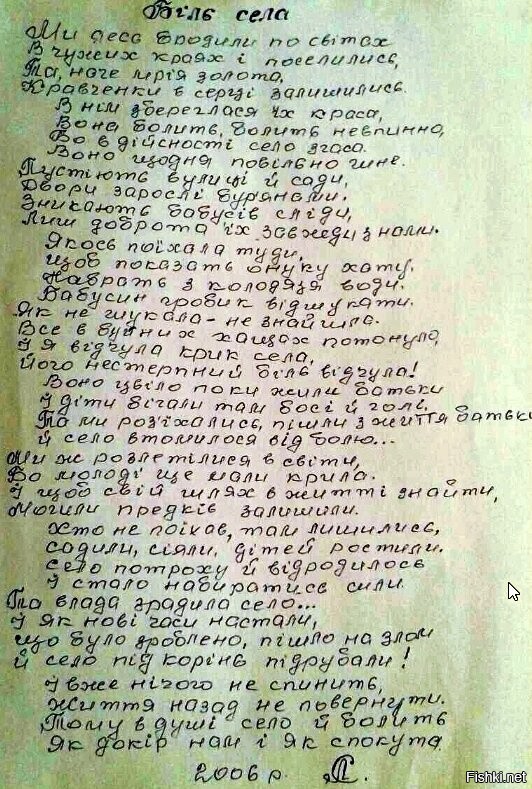 Біль села
Ми десь бродили по світах
В чужих краях і поселились,
Та, наче мрія золота,
Кравченки в серці залишились.
В нім збереглася їх краса,
Вона болить, болить невпинно,
Бо в дійсності село згаса.
Воно щодня повільно гине.
Пустіють вулиці й сади,
Двори зарослі бур'янами.
Зникають бабусів сліди,
Лиш доброта їх завжди з нами.
Якось поїхала туди,
щоб показать онуку хату.
Набрать з колодязя води.
Бабусин гробик відшукати.
Як не шукала - не знайшла.
Все в буйних хащах потонуло,
Й я відчула крик села,
Його нестерпний біль відчула!
Воно цвіло поки жили батьки
Й діти бігали там босі й голі.
Та ми роз'їхались, пішли з життя батьки
Й село втомилося від болю...
Ми ж розлетілися в світи,
Бо молоді ще мали крила.
Й щоб свій шлях в житті знайти,
Могили предків залишили.
Хто не поїхав, там лишились,
садили, сіяли, дітей ростили.
село потроху й відродилось
Й стало набиратись сили.
Та влада зрадила село...
Й як нові часи настали,
що було зроблено, пішло на злам
Й село під корінь підрубали!
Й вже нічого не спинить,
життя назад не повернути.
Тому в душі село й болить
Як докір нам і як спокута
2006 р.
Fishki.net